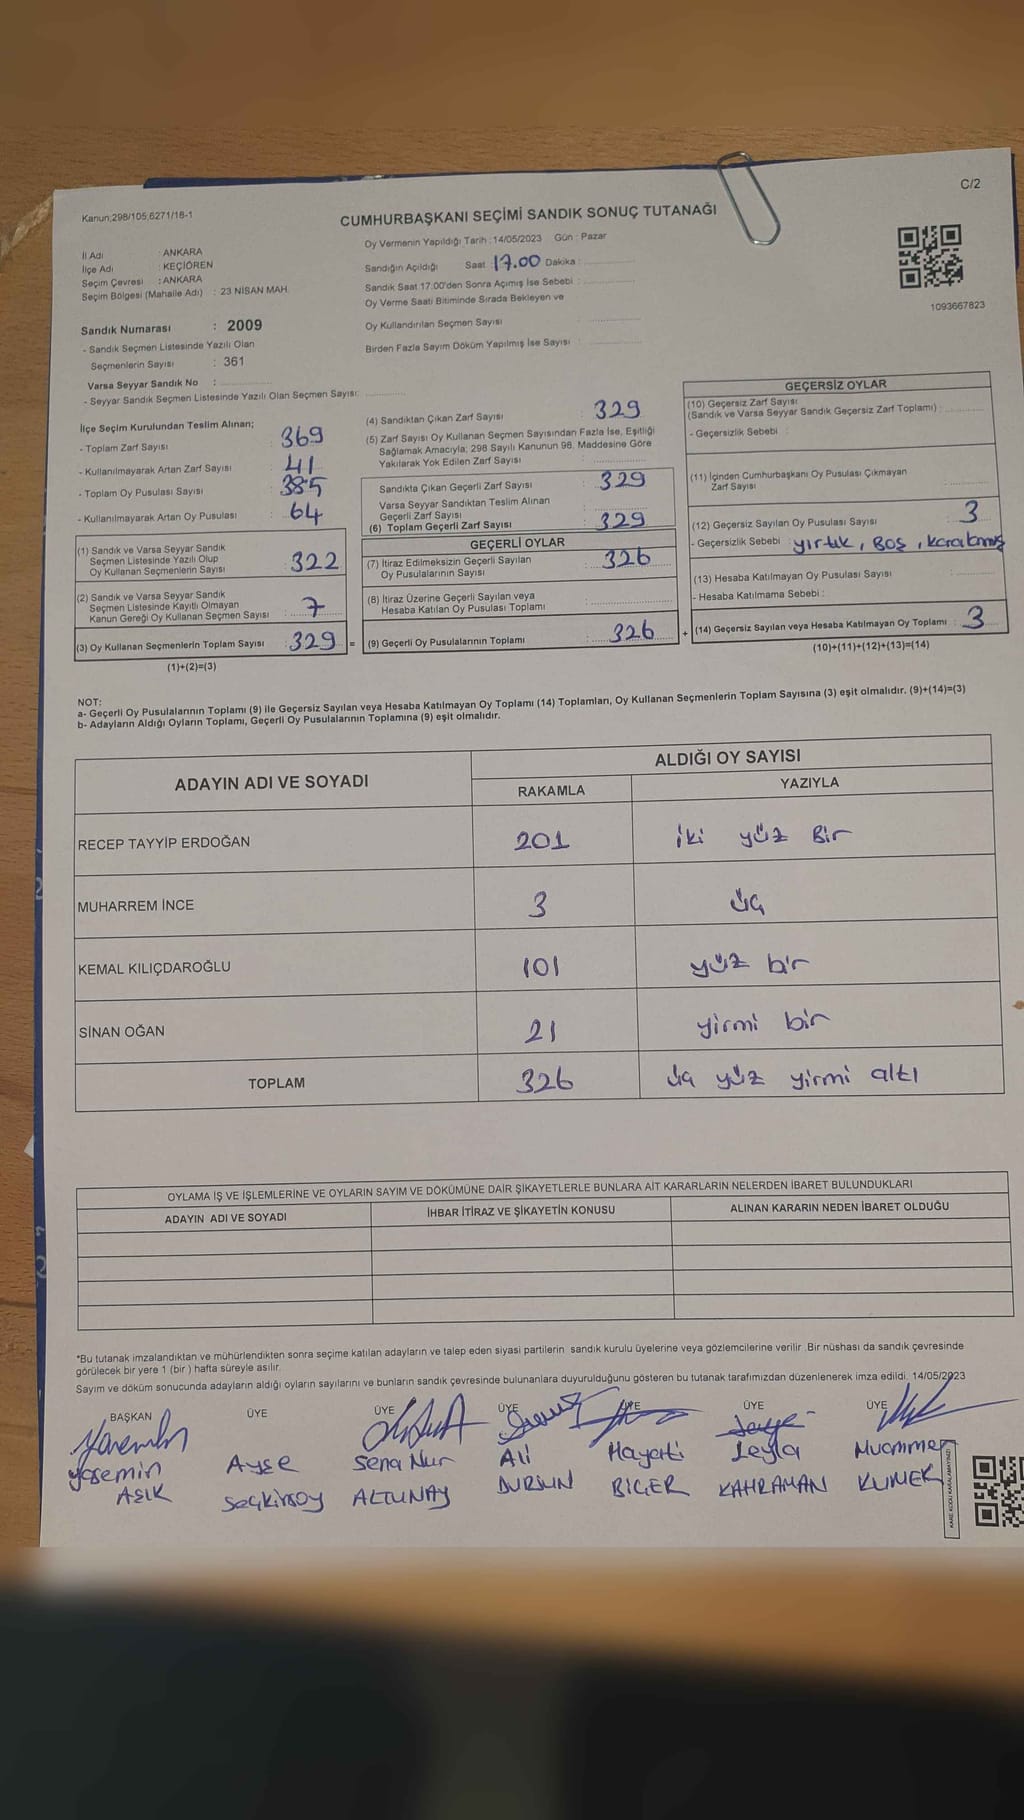 C/2
Kanun:298/105,6271/18-1
CUMHURBAŞKANI SEÇİMİ SANDIK SONUÇ TUTANAĞI
Oy Vermenin Yapıldığı Tarih : 14/05/2023 Gün : Pazar
İl Adı : ANKARA
İlçe Adı : KEÇİÖREN
Seçim Çevresi : ANKARA
Seçim Bölgesi (Mahalle Adı) : 23 NİSAN MAH.
Sandığın Açıldığı Saat 17.00 Dakika :
Sandık Saat 17:00'den Sonra Açımış İse Sebebi :
Oy Verme Saati Bitiminde Sırada Bekleyen ve
Oy Kullandırılan Seçmen Sayısı :
Birden Fazla Sayım Döküm Yapılmış İse Sayısı :
1093667823
Sandık Numarası : 2009
- Sandık Seçmen Listesinde Yazılı Olan
Seçmenlerin Sayısı : 361
Varsa Seyyar Sandık No :
- Seyyar Sandık Seçmen Listesinde Yazılı Olan Seçmen Sayısı:
İlçe Seçim Kurulundan Teslim Alınan;
- Toplam Zarf Sayısı : 369
- Kullanılmayarak Artan Zarf Sayısı : 41
- Toplam Oy Pusulası Sayısı : 385
- Kullanılmayarak Artan Oy Pusulası : 64
(1) Sandık ve Varsa Seyyar Sandık
Seçmen Listesinde Yazılı Olup
Oy Kullanan Seçmenlerin Sayısı : 322
(2) Sandık ve Varsa Seyyar Sandık
Seçmen Listesinde Kayıtlı Olmayan
Kanun Gereği Oy Kullanan Seçmen Sayısı : 7
(3) Oy Kullanan Seçmenlerin Toplam Sayısı : 329 =
(1)+(2)=(3)
(4) Sandıktan Çıkan Zarf Sayısı : 329
(5) Zarf Sayısı Oy Kullanan Seçmen Sayısından Fazla İse, Eşitliği
Sağlamak Amacıyla; 298 Sayılı Kanunun 98. Maddesine Göre
Yakılarak Yok Edilen Zarf Sayısı :
Sandıkta Çıkan Geçerli Zarf Sayısı : 329
Varsa Seyyar Sandıktan Teslim Alınan
Geçerli Zarf Sayısı :
(6) Toplam Geçerli Zarf Sayısı : 329
GEÇERLİ OYLAR
(7) İtiraz Edilmeksizin Geçerli Sayılan
Oy Pusulalarının Sayısı : 326
(8) İtiraz Üzerine Geçerli Sayılan veya
Hesaba Katılan Oy Pusulası Toplamı :
(9) Geçerli Oy Pusulalarının Toplamı : 326 +
GEÇERSİZ OYLAR
(10) Geçersiz Zarf Sayısı
(Sandık ve Varsa Seyyar Sandık Geçersiz Zarf Toplamı) :
- Geçersizlik Sebebi :
(11) İçinden Cumhurbaşkanı Oy Pusulası Çıkmayan
Zarf Sayısı :
(12) Geçersiz Sayılan Oy Pusulası Sayısı : 3
- Geçersizlik Sebebi : yırtık, Boş, karalanmış
(13) Hesaba Katılmayan Oy Pusulası Sayısı :
- Hesaba Katılmama Sebebi :
(14) Geçersiz Sayılan veya Hesaba Katılmayan Oy Toplamı : 3
(10)+(11)+(12)+(13)=(14)
NOT:
a- Geçerli Oy Pusulalarının Toplamı (9) ile Geçersiz Sayılan veya Hesaba Katılmayan Oy Toplamı (14) Toplamları, Oy Kullanan Seçmenlerin Toplam Sayısına (3) eşit olmalıdır. (9)+(14)=(3)
b- Adayların Aldığı Oyların Toplamı, Geçerli Oy Pusulalarının Toplamına (9) eşit olmalıdır.
ADAYIN ADI VE SOYADI ALDIĞI OY SAYISI
RAKAMLA YAZIYLA
RECEP TAYYİP ERDOĞAN 201 iki yüz Bir
MUHARREM İNCE 3 üç
KEMAL KILIÇDAROĞLU 101 yüz bir
SİNAN OĞAN 21 yirmi bir
TOPLAM 326 üç yüz yirmi altı
OYLAMA İŞ VE İŞLEMLERİNE VE OYLARIN SAYIM VE DÖKÜMÜNE DAİR ŞİKAYETLERLE BUNLARA AİT KARARLARIN NELERDEN İBARET BULUNDUKLARI
ADAYIN ADI VE SOYADI İHBAR İTİRAZ VE ŞİKAYETİN KONUSU ALINAN KARARIN NEDEN İBARET OLDUĞU
*Bu tutanak imzalandıktan ve mühürlendikten sonra seçime katılan adayların ve talep eden siyasi partilerin sandık kurulu üyelerine veya gözlemcilerine verilir .Bir nüshası da sandık çevresinde
görülecek bir yere 1 (bir ) hafta süreyle asılır.
Sayım ve döküm sonucunda adayların aldığı oyların sayılarını ve bunların sandık çevresinde bulunanlara duyurulduğunu gösteren bu tutanak tarafımızdan düzenlenerek imza edildi. 14/05/2023
BAŞKAN ÜYE ÜYE ÜYE ÜYE ÜYE ÜYE
Yasemin Ayşe Sena Nur Ali Hayati Leyla Muammer
AŞIK Seçkinsoy ALTUNAY DURSUN BİÇER KAHRAMAN KUMEK
KARE KODU KARALAMAYINIZ!